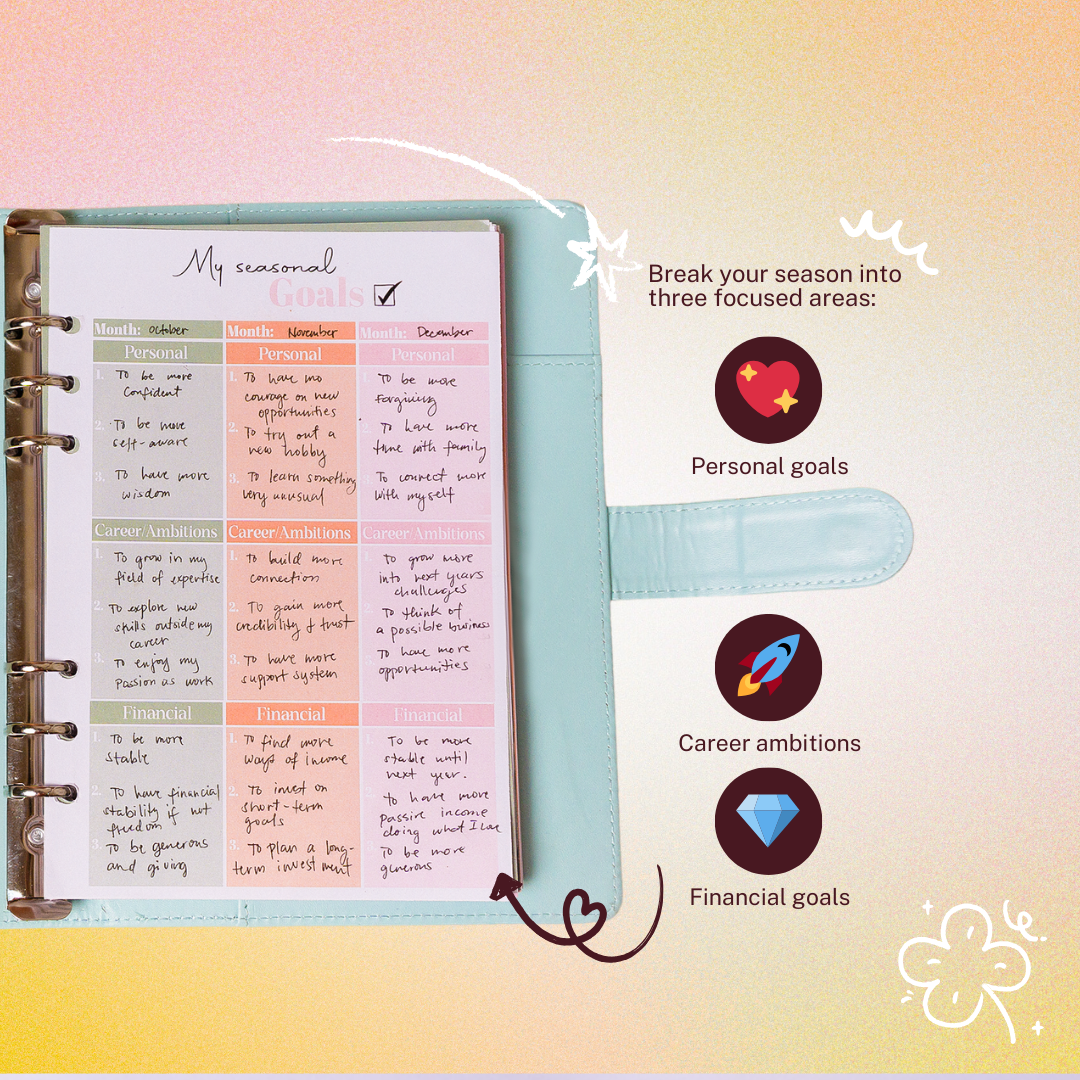 My seasonal
Goals
Month: October
Personal
1. To be more
confident
2. To be more
self-aware
3. To have more
wisdom
Career/Ambitions
1. To grow in my
field of expertise
2. To explore new
skills outside my
career
3. To enjoy my
passion as work
Financial
1. To be more
stable
2. To have financial
stability if not
freedom
3. To be generous
and giving
Month: November
Personal
1. To have mo
courage on new
opportunities
2. To try out a
new hobby
3. To learn something
very unusual
Career/Ambitions
1. To build more
connection
2. To gain more
credibility & trust
3. To have more
support system
Financial
1. To find more
ways of income
2. To invest on
short-term
goals
3. To plan a long-
term investment
Month: December
Personal
1. To be more
forgiving
2. To have more
time with family
3. To connect more
with myself
Career/Ambitions
1. To grow more
into next years
challenges
2. To think of
a possible business
3. To have more
opportunities
Financial
1. To be more
stable until
next year.
2. to have more
passive income
doing what I love
3. To be more
generous
Break your season into
three focused areas:
Personal goals
Career ambitions
Financial goals